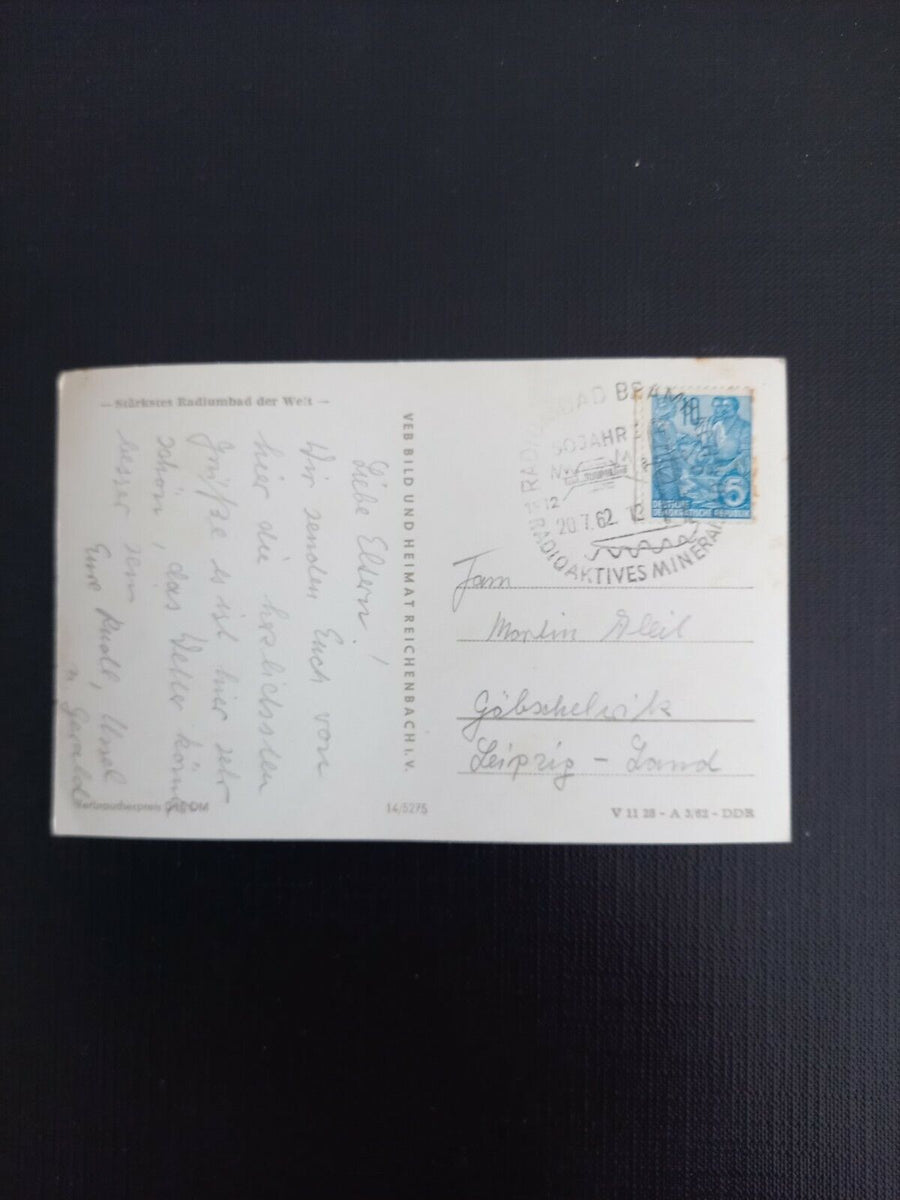 — Stärkstes Radiumbad der Welt —
Liebe Eltern!
Wir senden Euch von
hier die herzlichsten
Grüße es ist hier sehr
schön, das Wetter könnte
besser sein
Eure Rudolf, Ursel
u. Gerald
VEB BILD UND HEIMAT REICHENBACH I. V.
RADIUMBAD BRAM
50 JAHR
1912
20.7.62. 12
RADIOAKTIVES MINERAL
10
5
DEUTSCHE
DEMOKRATISCHE REPUBLIK
Fam
Martin
Göbschelwitz
Leipzig - Land
Verbraucherpreis DM
14/5275
V 11 28 - A 3/62 - DDR